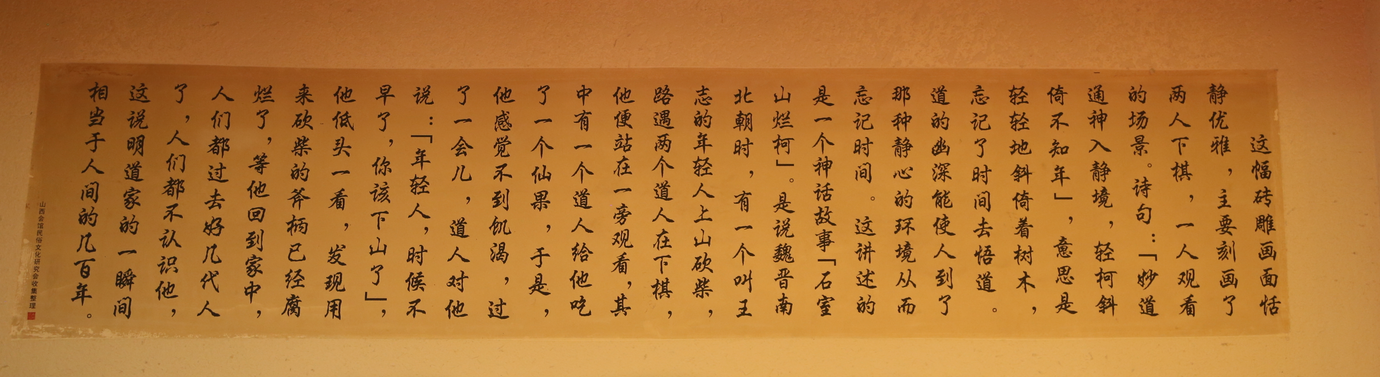 这幅砖雕画面恬
静优雅，主要刻画了
两人下棋，一人观看
的场景。诗句：「妙道
通神入静境，轻柯斜
倚不知年」，意思是
轻轻地斜倚着树木，
忘记了时间去悟道。
道的幽深能使人到了
那种静心的环境从而
忘记时间。这讲述的
是一个神话故事「石室
山烂柯」。是说魏晋南
北朝时，有一个叫王
志的年轻人上山砍柴，
路遇两个道人在下棋，
他便站在一旁观看，其
中有一个道人给他吃
了一个仙果，于是，
他感觉不到饥渴，过
了一会儿，道人对他
说：「年轻人，时候不
早了，你该下山了」，
他低头一看，发现用
来砍柴的斧柄已经腐
烂了，等他回到家中，
人们都过去好几代人
了，人们都不认识他，
这说明道家的一瞬间
相当于人间的几百年。
山西金馆民俗文化研究会收集整理